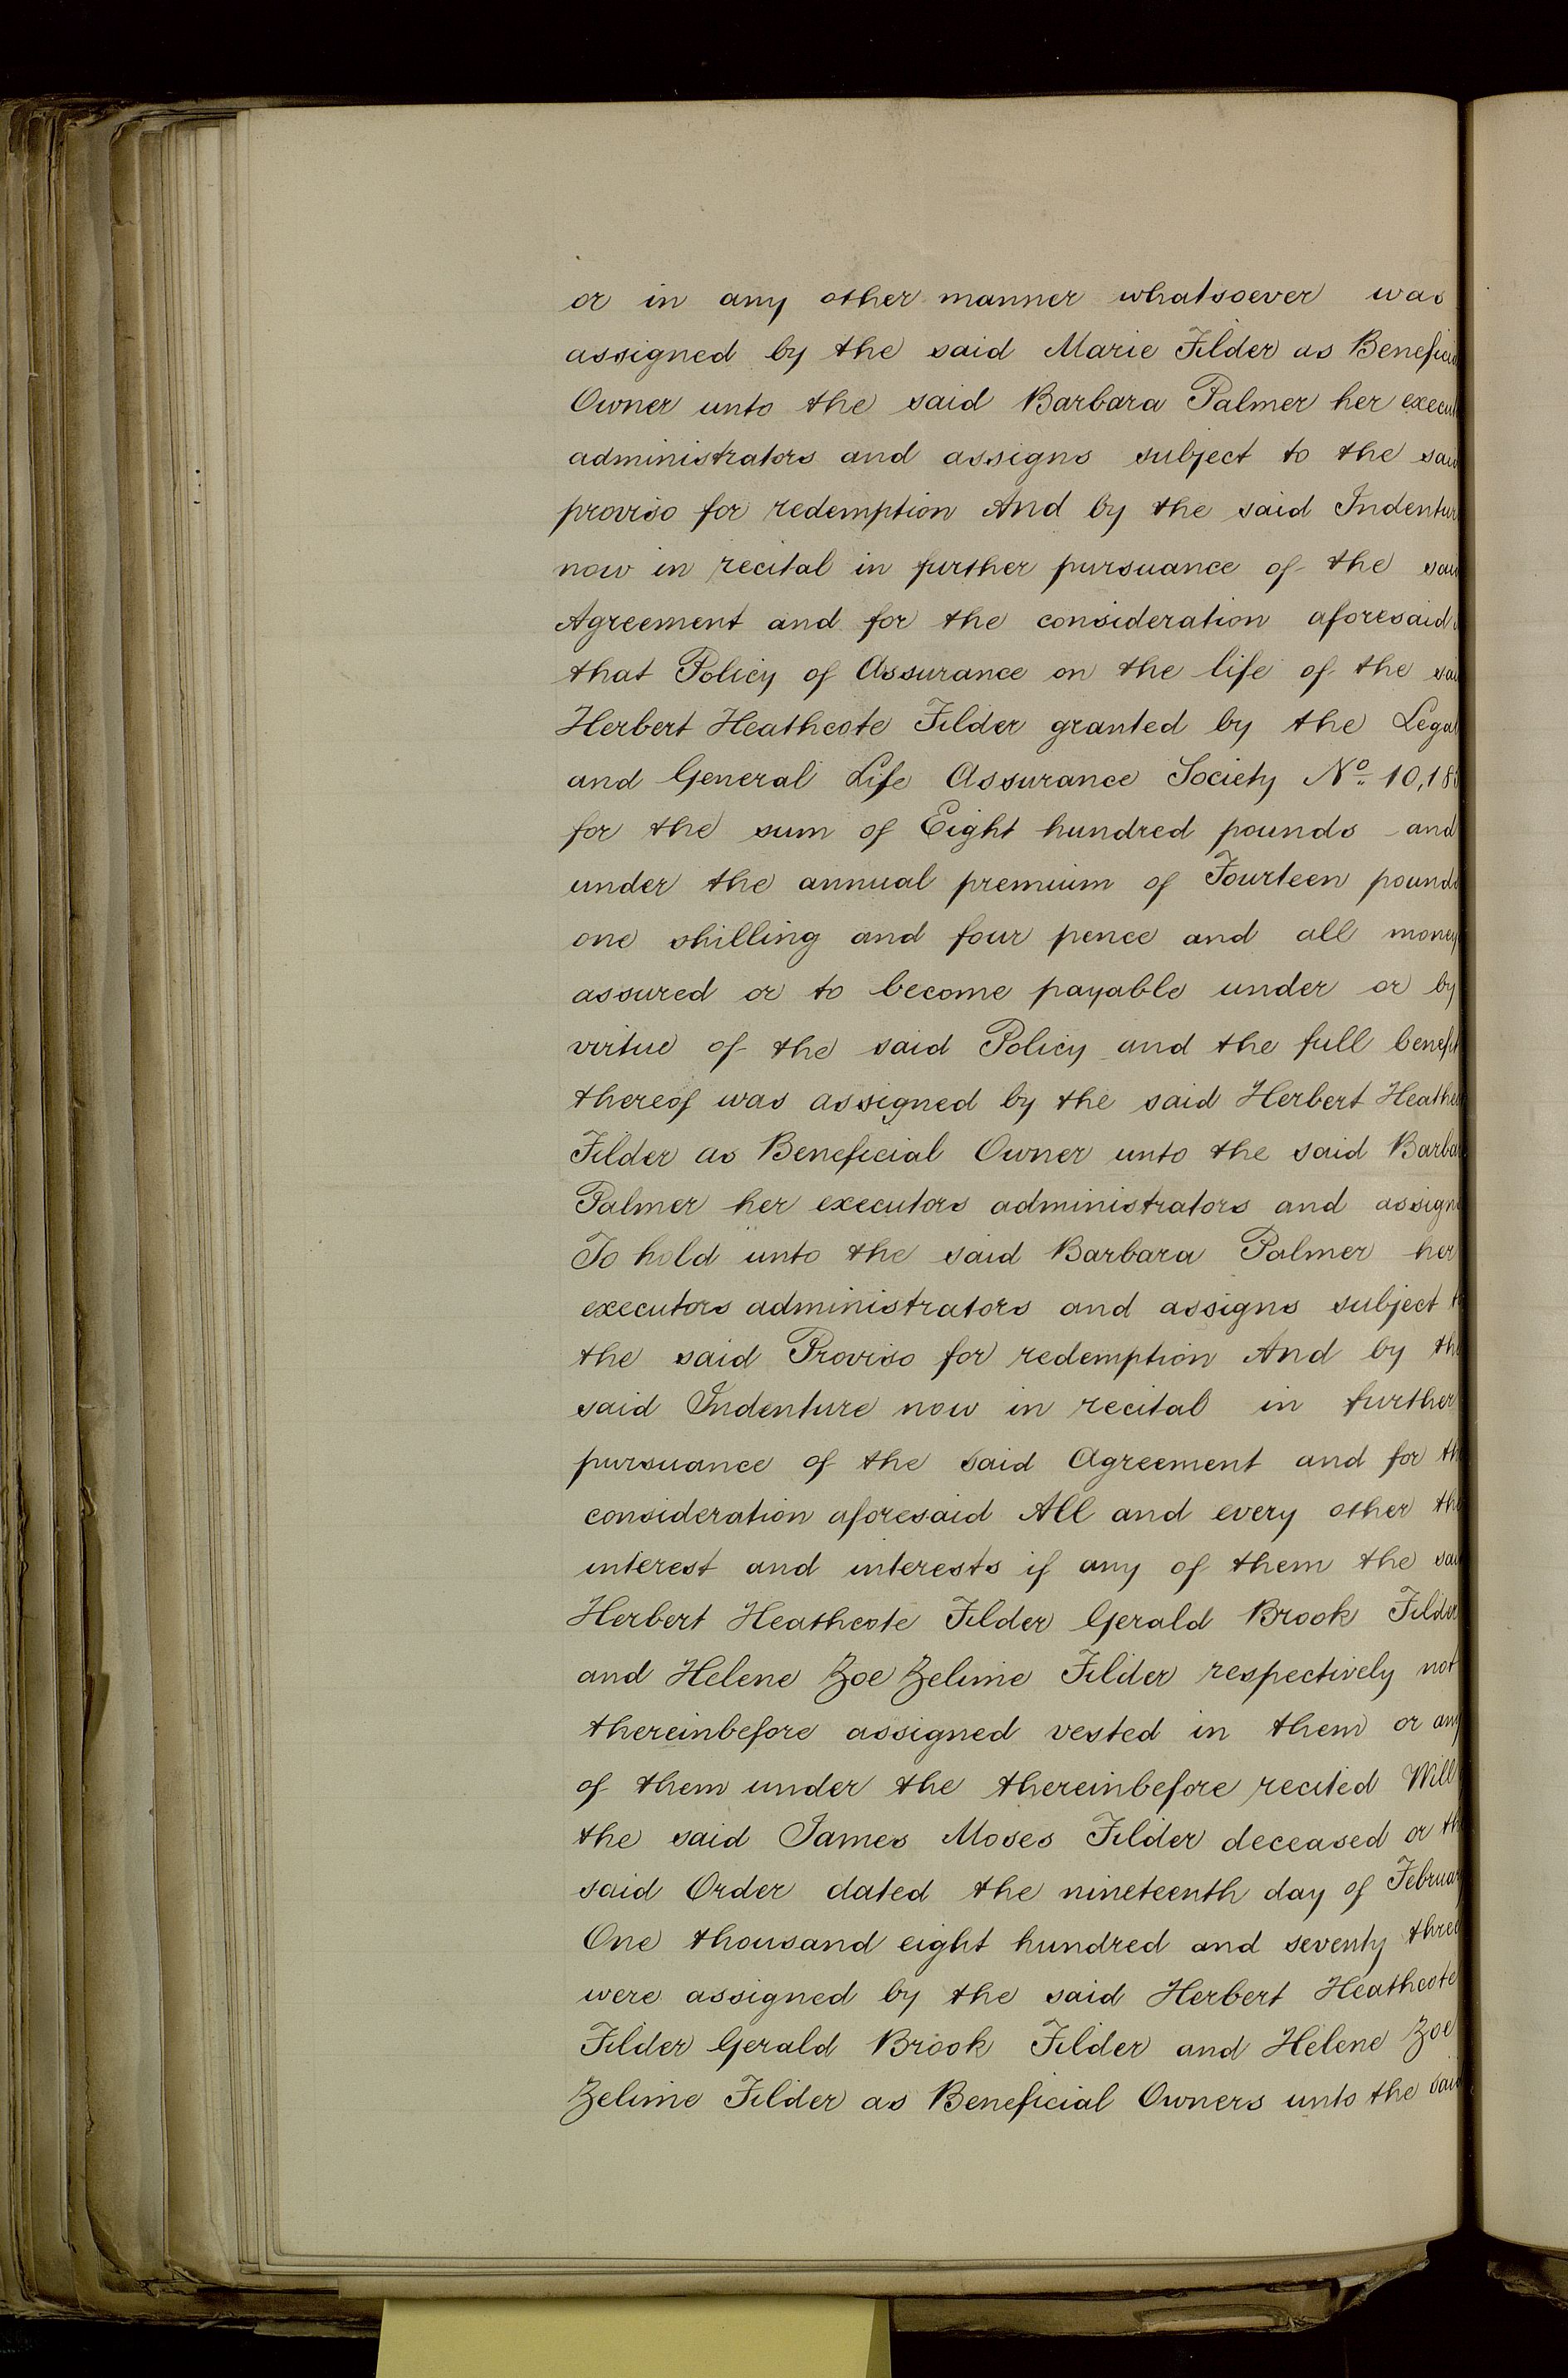 or in any other manner whatsoever was
assigned by the said Marie Filder as Benefici
Owner unto the said Barbara Palmer her execu
administrators and assigns subject to the said
proviso for redemption And by the said Indentur
now in recital in further pursuance of the sai
Agreement and for the consideration aforesaid
that Policy of Assurance on the life of the sai
Herbert Heathcote Filder granted by the Legal
and General Life Assurance Society No. 10,18
for the sum of Eight hundred pounds and
under the annual premium of Fourteen pounds
one shilling and four pence and all money
assured or to become payable under or by
virtue of the said Policy and the full benefit
thereof was assigned by the said Herbert Heathc
Filder as Beneficial Owner unto the said Barba
Palmer her executors administrators and assign
To hold unto the said Barbara Palmer her
executors administrators and assigns subject t
the said Proviso for redemption And by the
said Indenture now in recital in further
pursuance of the said Agreement and for th
consideration aforesaid All and every other the
interest and interests if any of them the sai
Herbert Heathcote Filder Gerald Brook Filder
and Helene Zoe Zelime Filder respectively not
thereinbefore assigned vested in them or any
of them under the thereinbefore recited Will
the said James Moses Filder deceased or the
said Order dated the nineteenth day of Februar
One thousand eight hundred and seventy three
were assigned by the said Herbert Heathcote
Filder Gerald Brook Filder and Helene Zoe
Zelime Filder as Beneficial Owners unto the said